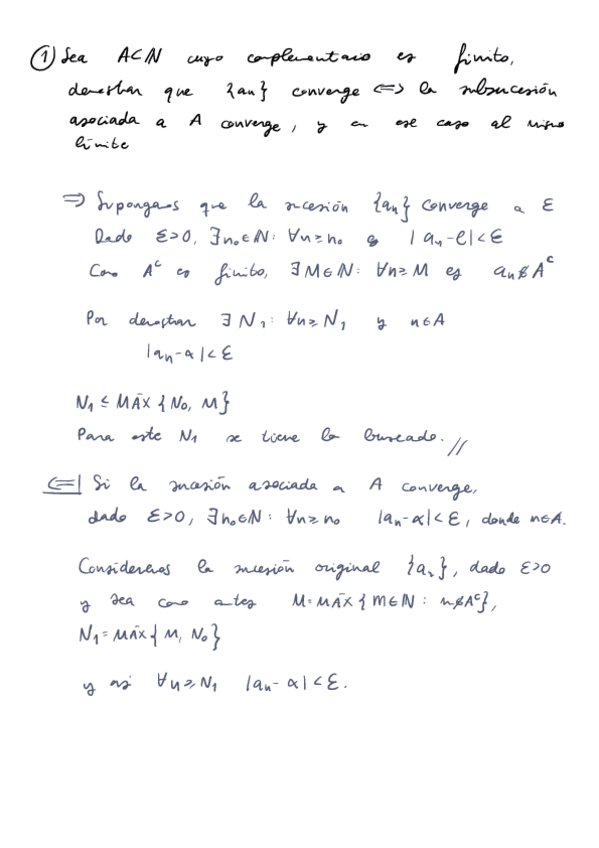 ① Sea A⊂ℕ cuyo complementario es finito,
demostrar que {an} converge ⇔ la subsucesión
asociada a A converge, y en ese caso al mismo
límite
⇒ Supongamos que la sucesión {an} converge a ℓ
Dado ε>0, ∃n₀∈ℕ: ∀n≥n₀ es |an-ℓ|<ε
Como Aᶜ es finito, ∃M∈ℕ: ∀n≥M es an∉Aᶜ
Por demostrar ∃N₁: ∀n≥N₁ y n∈A
|an-α|<ε
N₁ ≤ MÁX{N₀, M}
Para este N₁ se tiene lo buscado. //
⇐| Si la sucesión asociada a A converge,
dado ε>0, ∃n₀∈ℕ: ∀n≥n₀ |an-α|<ε, donde n∈A.
Consideremos la sucesión original {an}, dado ε>0
y sea como antes M=MÁX{m∈ℕ: n∉Aᶜ},
N₁=MÁX{M, N₀}
y así ∀n≥N₁ |an-α|<ε.